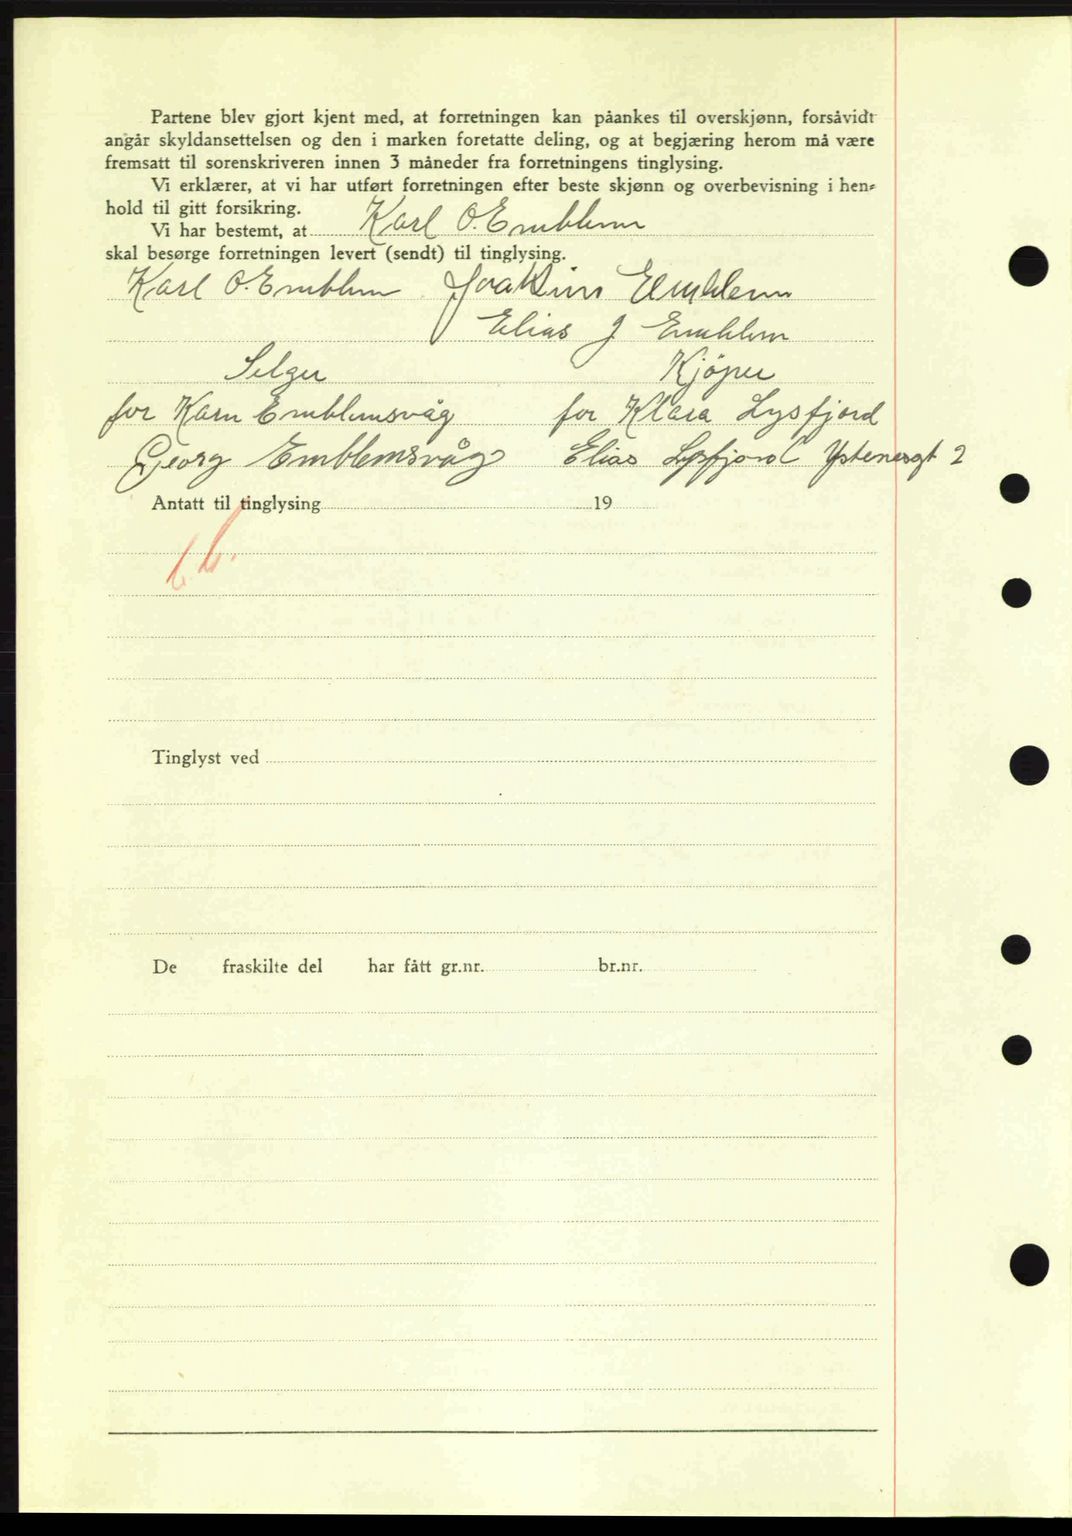 Partene blev gjort kjent med, at forretningen kan påankes til overskjønn, forsåvidt
angår skyldansettelsen og den i marken foretatte deling, og at begjæring herom må være
fremsatt til sorenskriveren innen 3 måneder fra forretningens tinglysing.
Vi erklærer, at vi har utført forretningen efter beste skjønn og overbevisning i hen-
hold til gitt forsikring.
Vi har bestemt, at Karl O. Emblem
skal besørge forretningen levert (sendt) til tinglysing.
Karl O. Emblem Joakim Emblem
Elias J Emblem
Selger Kjöper
for Karn Emblemsvåg for Klara Lysfjord
Georg Emblemsvåg Elias Lysfjord Ystenesgt 2
Antatt til tinglysing 19
Tinglyst ved
De fraskilte del har fått gr.nr. br.nr.